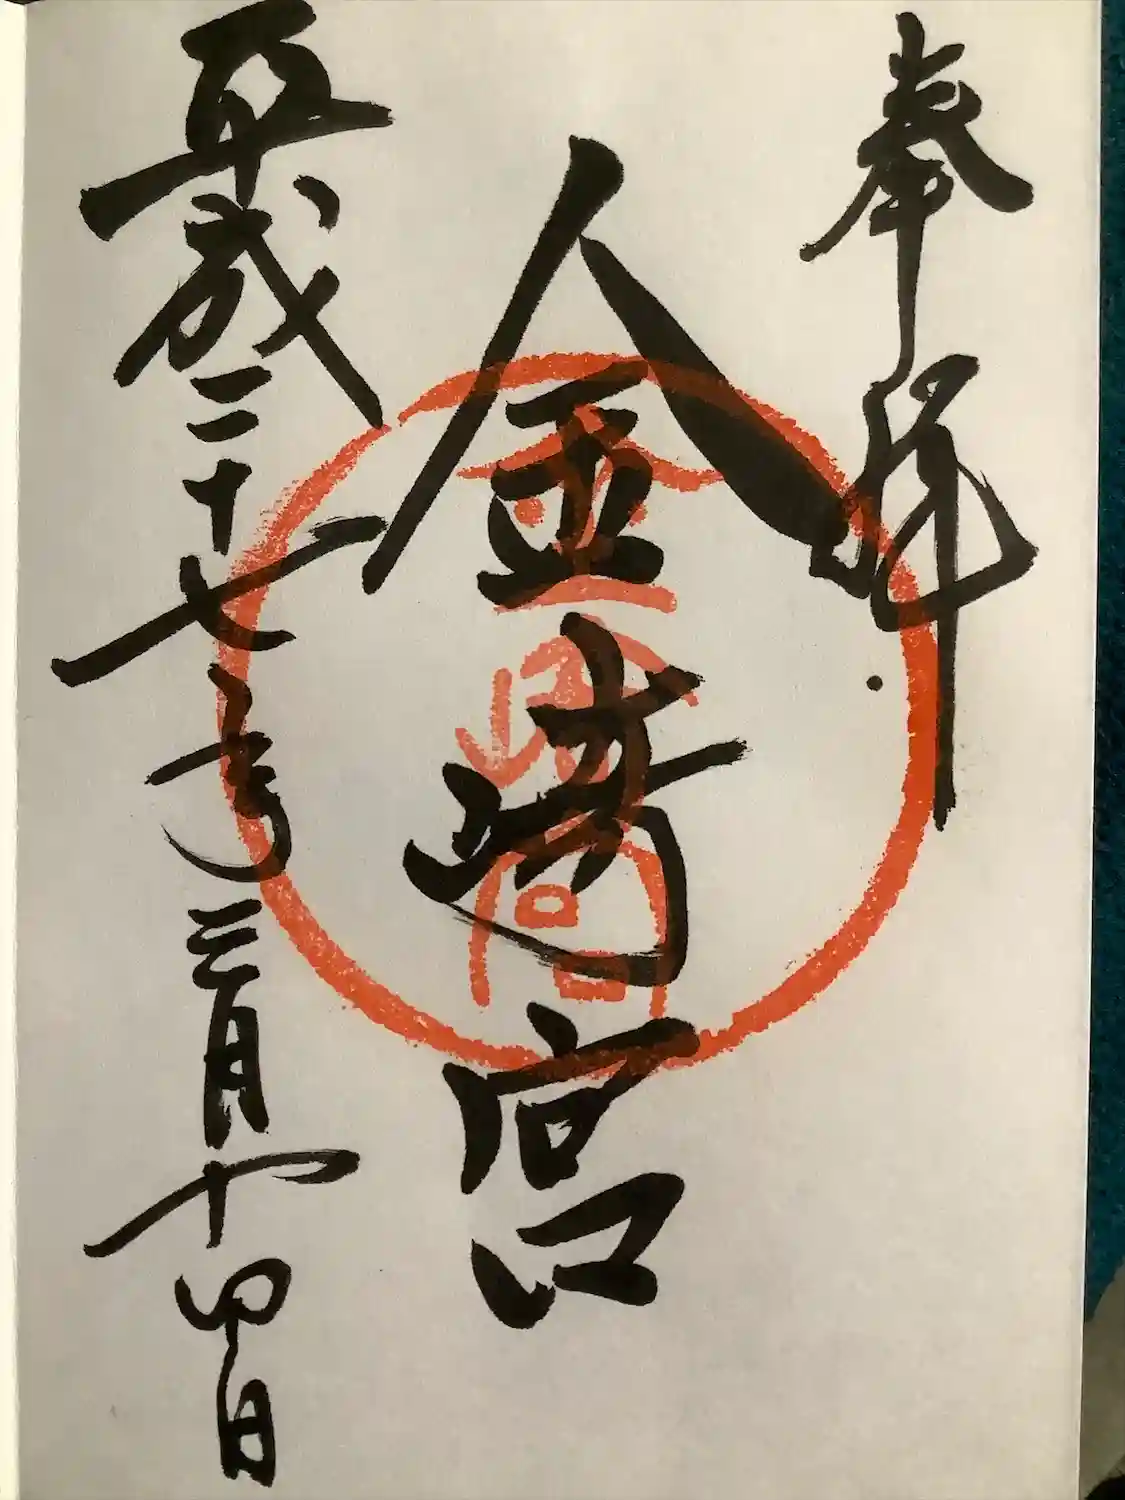 奉拝
金崎宮
金崎宮
平成二十七年三月十四日